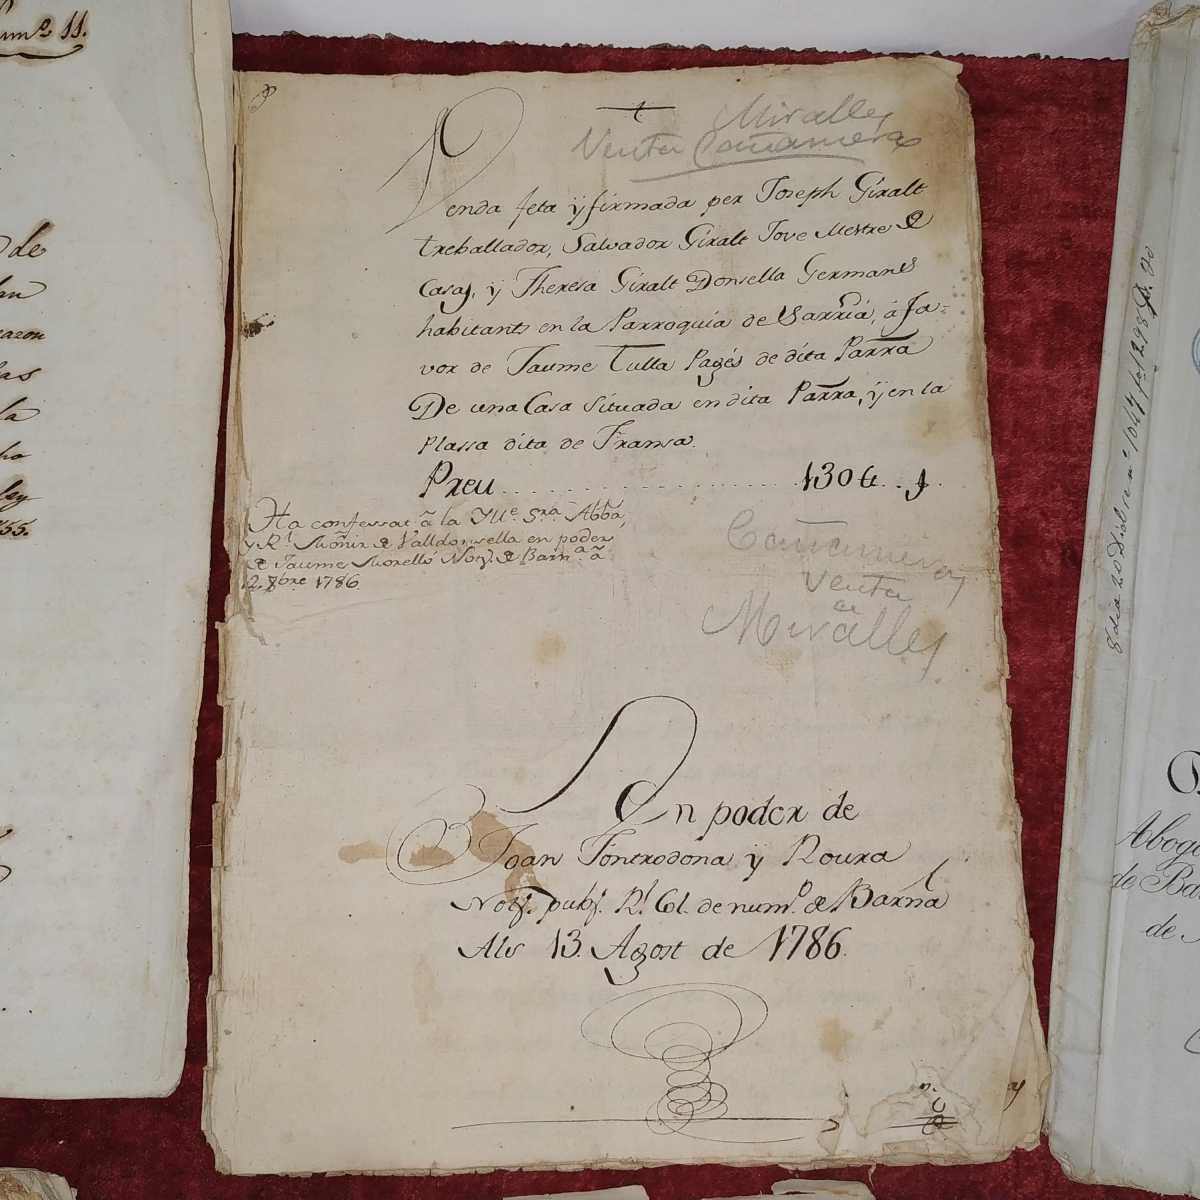 11.
de
razon
las
la
ley
55.
Miralles
Venta Cañameras
Venda feta ÿ firmada per Joseph Giralt
treballador, Salvador Giralt Jove Mestre de
Casas, ÿ Theresa Giralt Donsella Germans
habitants en la Parroquia de Sarriá, á fa=
vor de Jaume Tulla Pagés de dita Parra
De una Casa situada en dita Parra, ÿ en la
Plassa dita de Fransa.
Preu 130 ₶
Ha confessat â la Ille. Sra. Abba,
y Rl. Moñir de Valldonsella en poder
de Jaume Morelló Noty. de Barna. â
12 8bre 1786.
Cañameras
Venta
a
Miralles
En poder de
Joan Fontrodona ÿ Roura
Noty. pubh. Rl. Col. de numo. de Barña
Als 13. Agost de 1786.
Abog
de Ba
de